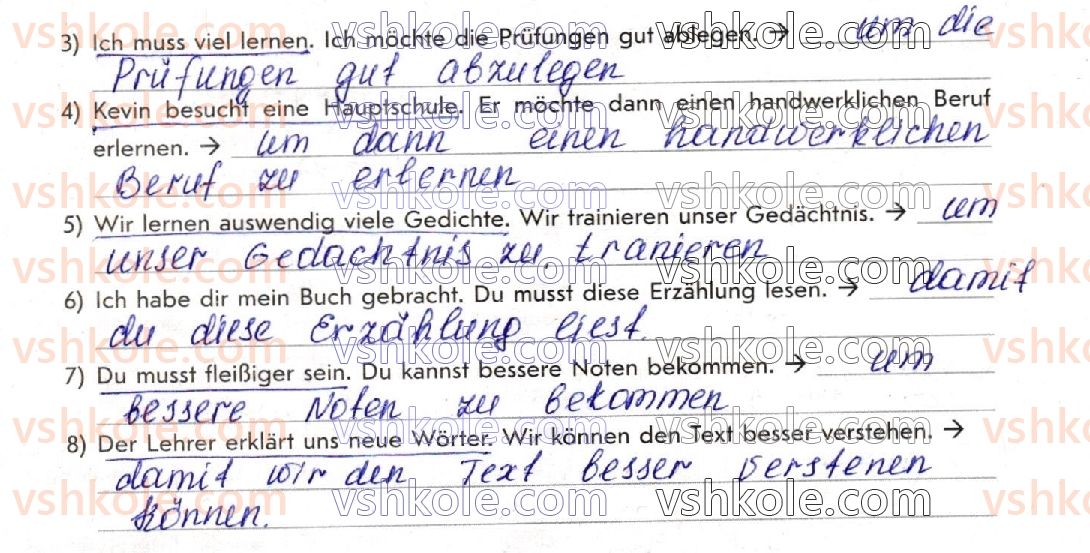 3) Ich muss viel lernen. Ich möchte die Prüfungen gut ablegen. → um die
Prüfungen gut abzulegen
4) Kevin besucht eine Hauptschule. Er möchte dann einen handwerklichen Beruf
erlernen. → um dann einen handwerklichen
Beruf zu erlernen
5) Wir lernen auswendig viele Gedichte. Wir trainieren unser Gedächtnis. → um
unser Gedachtnis zu tranieren
6) Ich habe dir mein Buch gebracht. Du musst diese Erzählung lesen. → damit
du diese Erzählung liest.
7) Du musst fleißiger sein. Du kannst bessere Noten bekommen. → um
bessere Noten zu bekommen
8) Der Lehrer erklärt uns neue Wörter. Wir können den Text besser verstehen. →
damit wir den Text besser verstehen
können.
vshkole.com